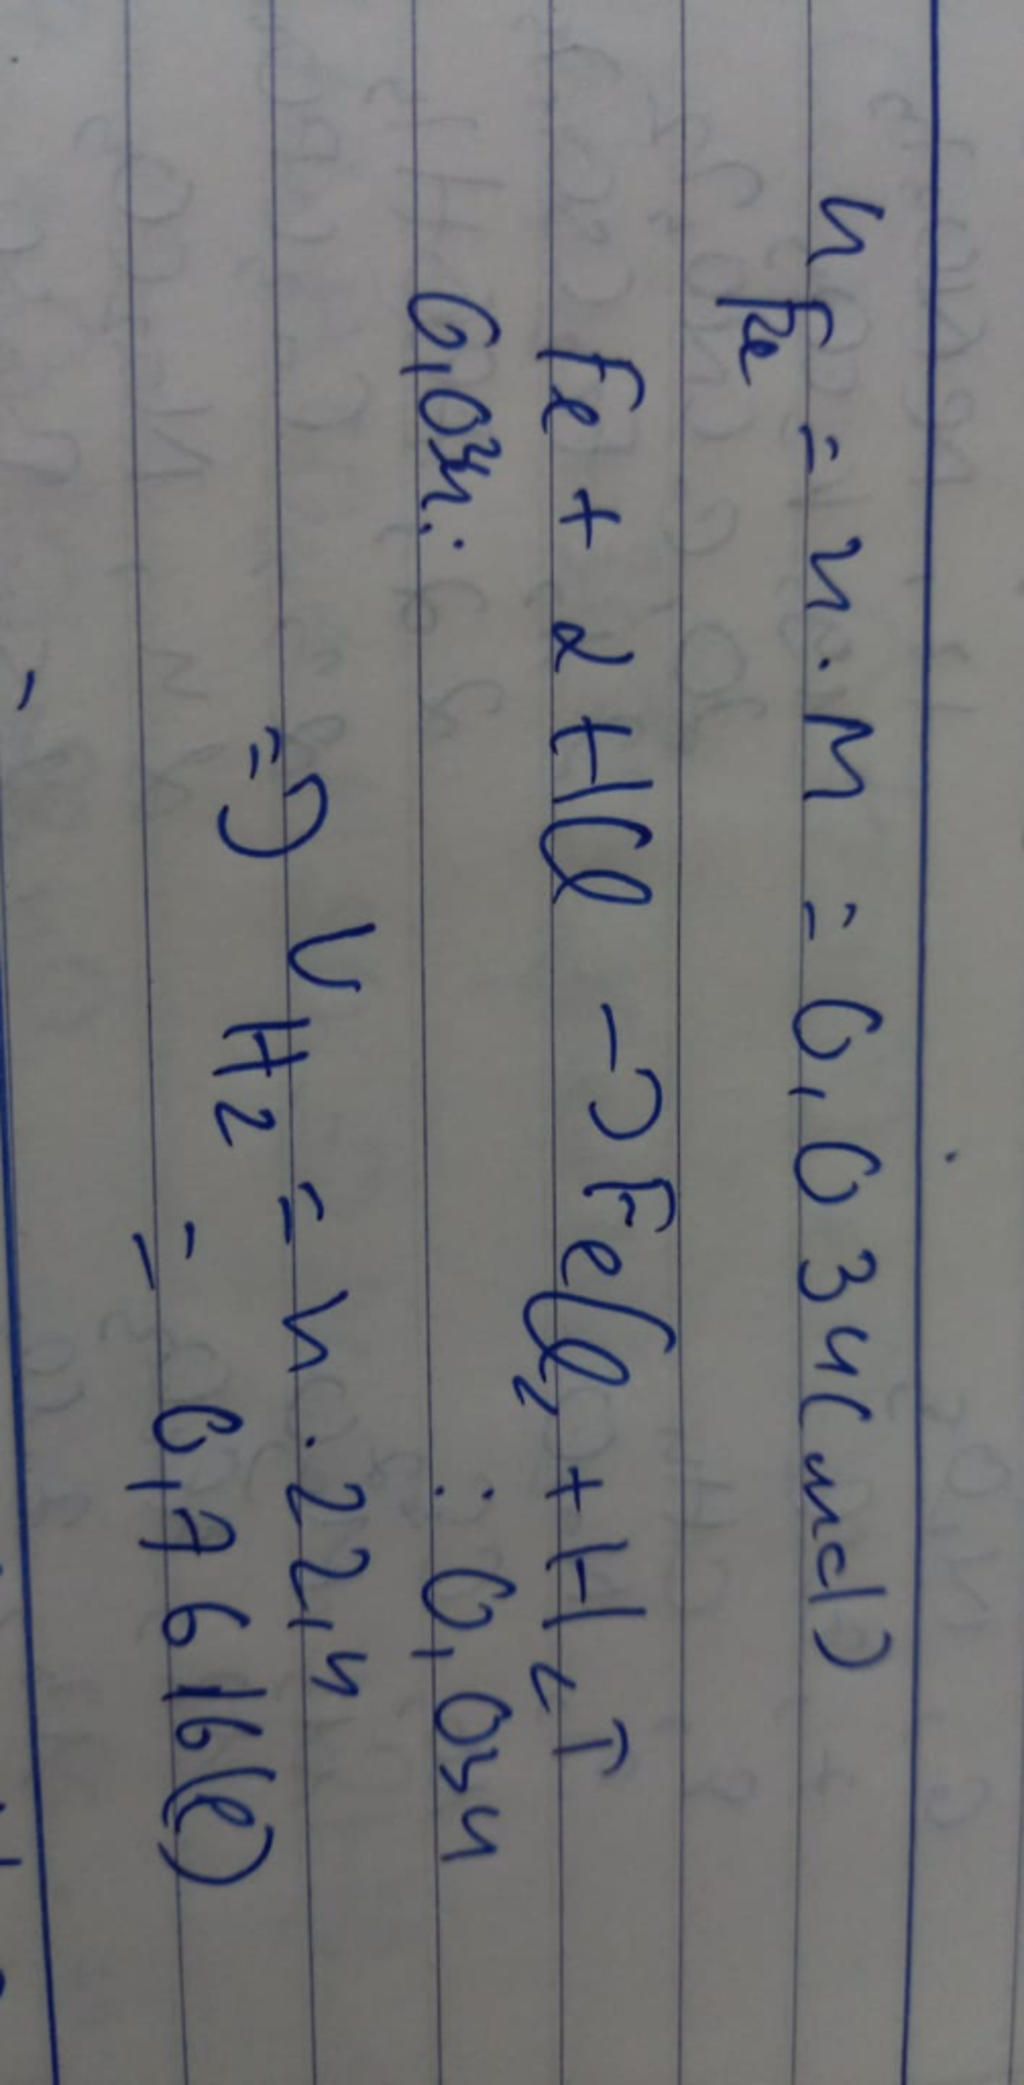 n Fe = n.M = 0,034(mol)
Fe + 2HCl -> FeCl2 + H2↑
0,034 : : 0,034
=> V H2 = n.22,4
= 0,7616(l)